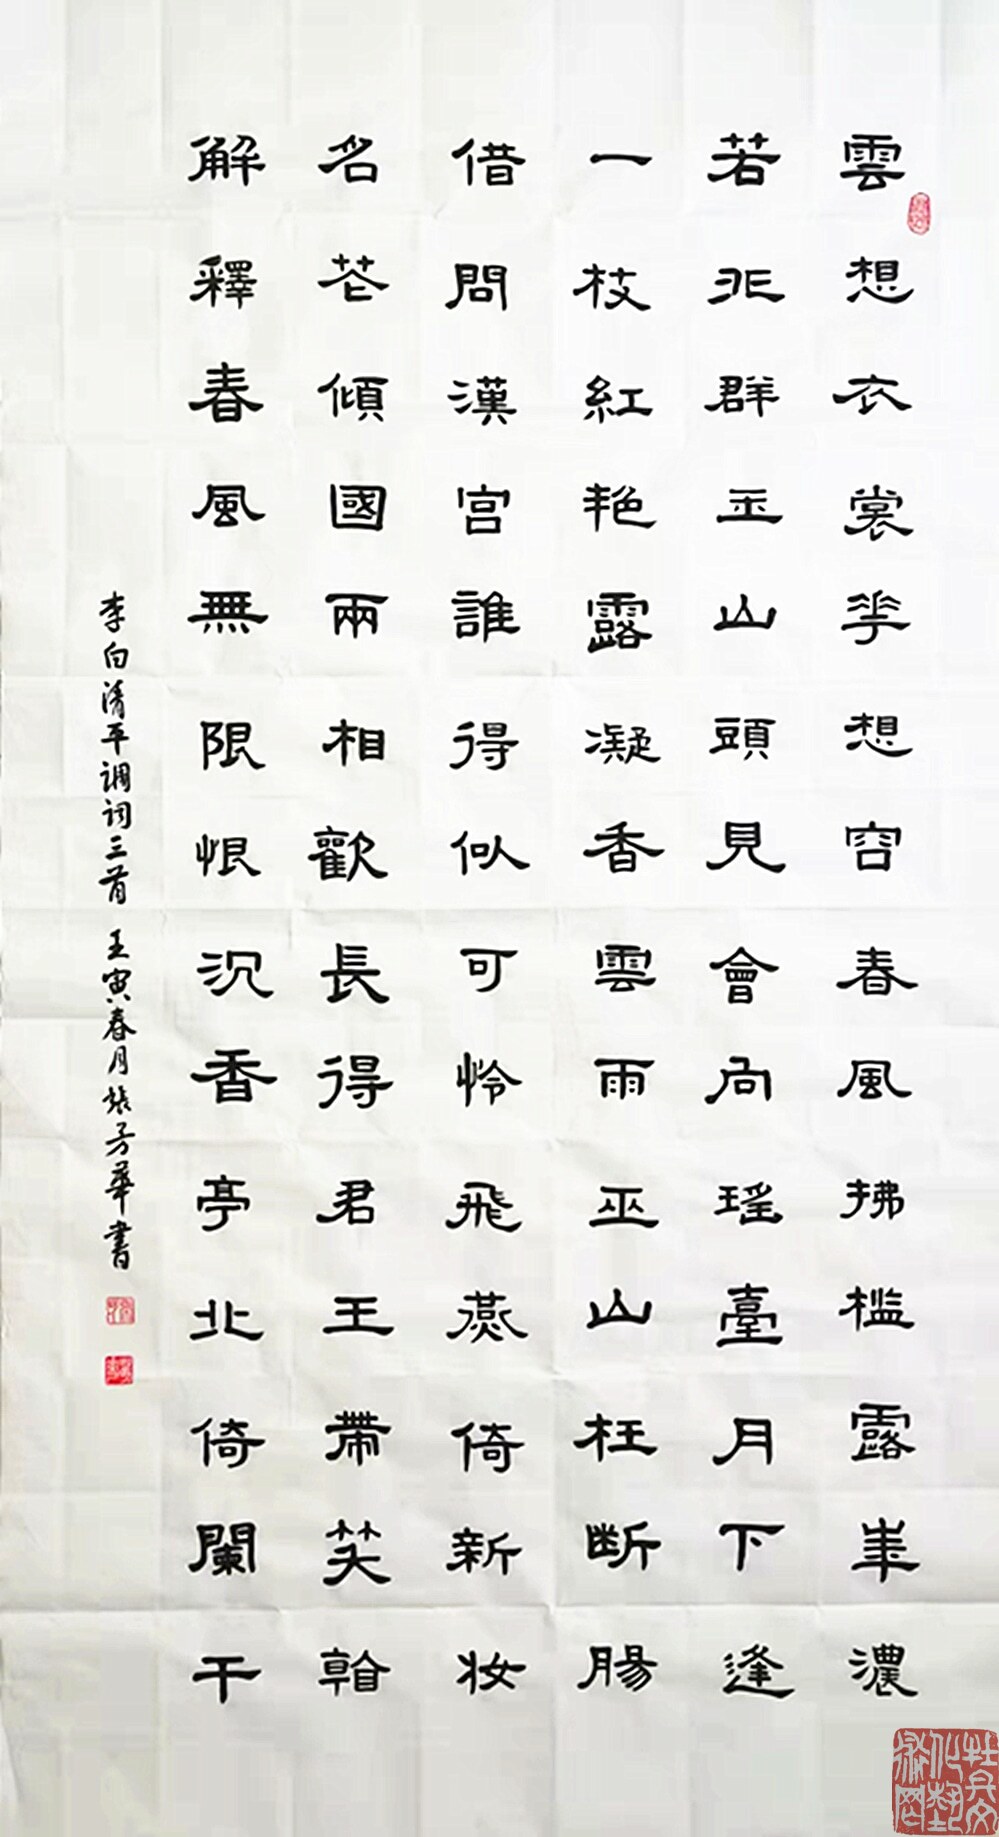 雲想衣裳華想容春風拂檻露華濃
若非群玉山頭見會向瑤臺月下逢
一枝紅艳露凝香雲雨巫山枉断腸
借問漢宫誰得似可怜飛燕倚新妆
名花傾國兩相歡長得君王帶笑看
解釋春風無限恨沉香亭北倚闌干
李白清平调词三首 壬寅春月張芳華書
牡丹文化艺術网